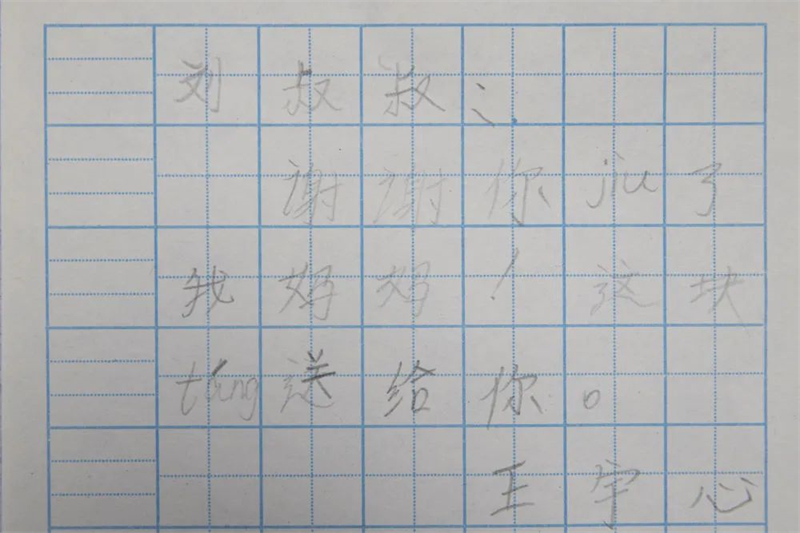 刘叔叔：
谢谢你jiù了
我妈妈！这块
táng送给你。
王宇心